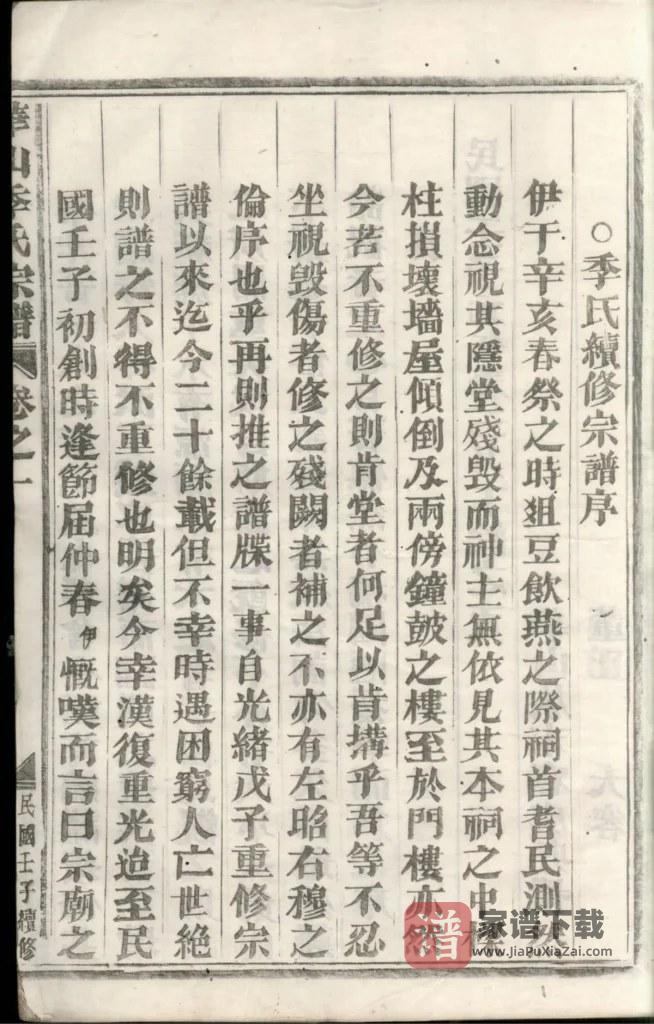 ○季氏續修宗譜序
伊于辛亥春祭之時俎豆飲燕之際祠首耆民測然
動念視其隱堂殘毀而神主無依見其本祠之中
柱損壞墻屋傾倒及兩傍鐘皷之樓至於門樓亦然
今若不重修之則肯堂者何足以肯搆乎吾等不忍
坐視毀傷者修之殘闕者補之不亦有左昭右穆之
倫序也乎再則推之譜牒一事自光緒戊子重修宗
譜以來迄今二十餘載但不幸時遇困窮人亡世絶
則譜之不得不重修也明矣今幸漢復重光迨至民
國壬子初創時逢節届仲春伊慨嘆而言曰宗廟之
華山季氏宗譜 卷之一 民國壬子續修
譜 家谱下载
www.JiaPuXiaZai.com